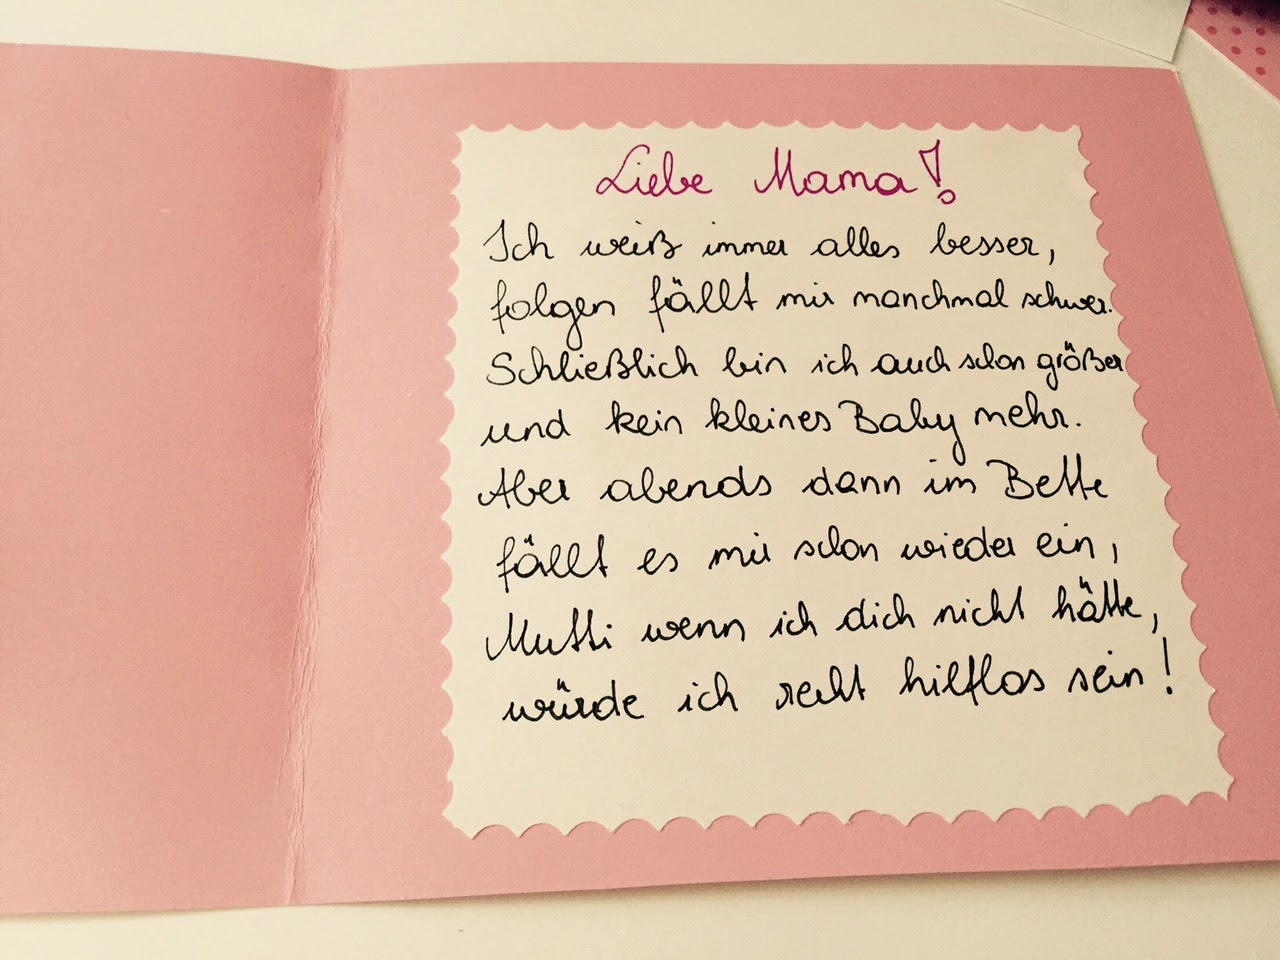 Liebe Mama!
Ich weiß immer alles besser,
folgen fällt mir manchmal schwer.
Schließlich bin ich auch schon größer
und kein kleines Baby mehr.
Aber abends dann im Bette
fällt es mir schon wieder ein,
Mutti wenn ich dich nicht hätte,
würde ich recht hilflos sein!